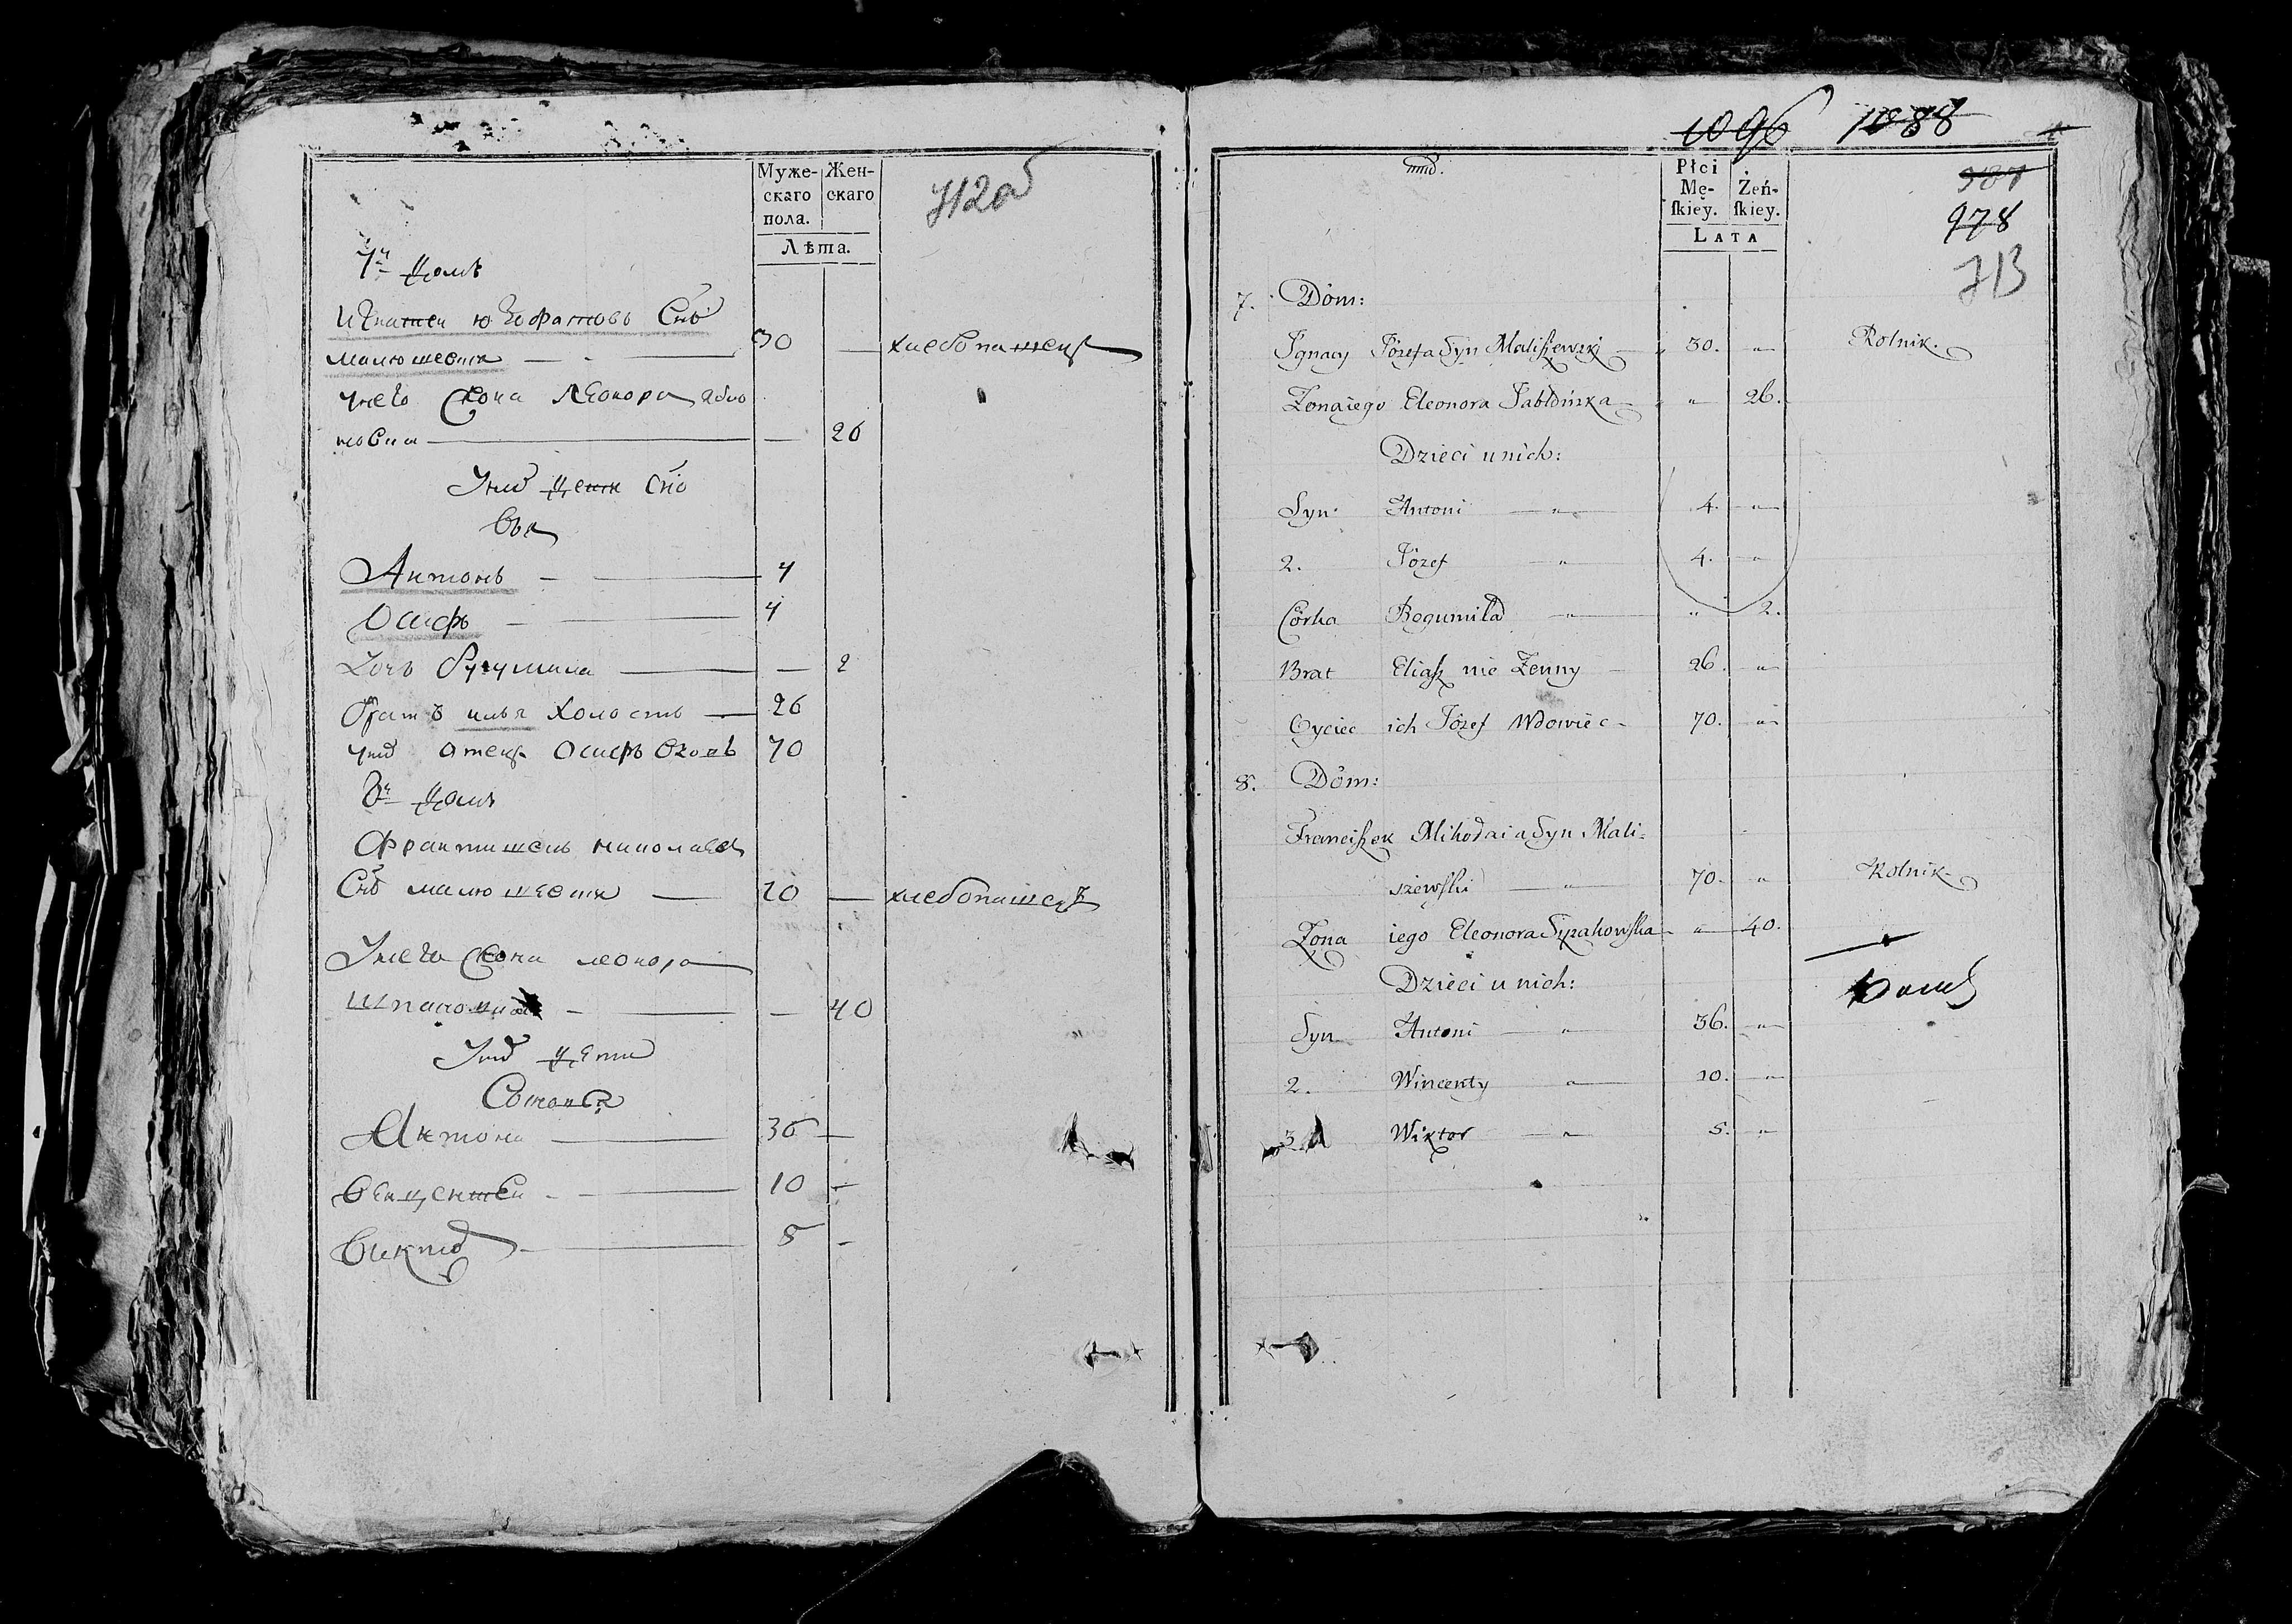 Муже-
скаго
пола.
Жен-
скаго
Лѣта.
712об
7й домъ
Игнатей Юзефатовъ Снъ
малюшевски 30 — хлебопашецъ
унего Жона Леонора Ябло
новска — 26
Унихъ дети Сно
вья
Антонъ — 4
Осифъ — 4
Дочь Бугумила — 2
Братъ илья холостъ — 26
унихъ отецъ Осифъ вдовъ 70
8й домъ
Франтишекъ николаевъ
Снъ малюшевски — 70 — хлебопашецъ
Унего Жона леонора
— 40
Унихъ дети
Антони — 36 —
Винцентей — 10 —
Виктор — 5 —
1096 1088
Płci
Mę-
ſkiey.
Żeń-
ſkiey.
LATA
987
978
713
7. Dóm:
Ignacy Józefa Syn Maliszewski — „ 30. „ Rolnik.
Zona iego Eleonora Jabłońska „ „ 26.
Dzieci u nich:
Syn Antoni — „ — 4. „
2. Józef „ — 4. „
Córka Bogumiła „ — „ 2.
Brat Eliasz nie Żenny — 26. „
Oyciec ich Józef Wdowiec - 70. „
8. Dóm:
Franciszek Mikołaia Syn Mali-
szewski — „ — 70. „ Rolnik
Zona iego Eleonora — „ 40.
Dzieci u nich:
Syn Antoni — „ — 36. „
2. Wincenty „ — 10. „
3. Wiktor — „ — 5. „